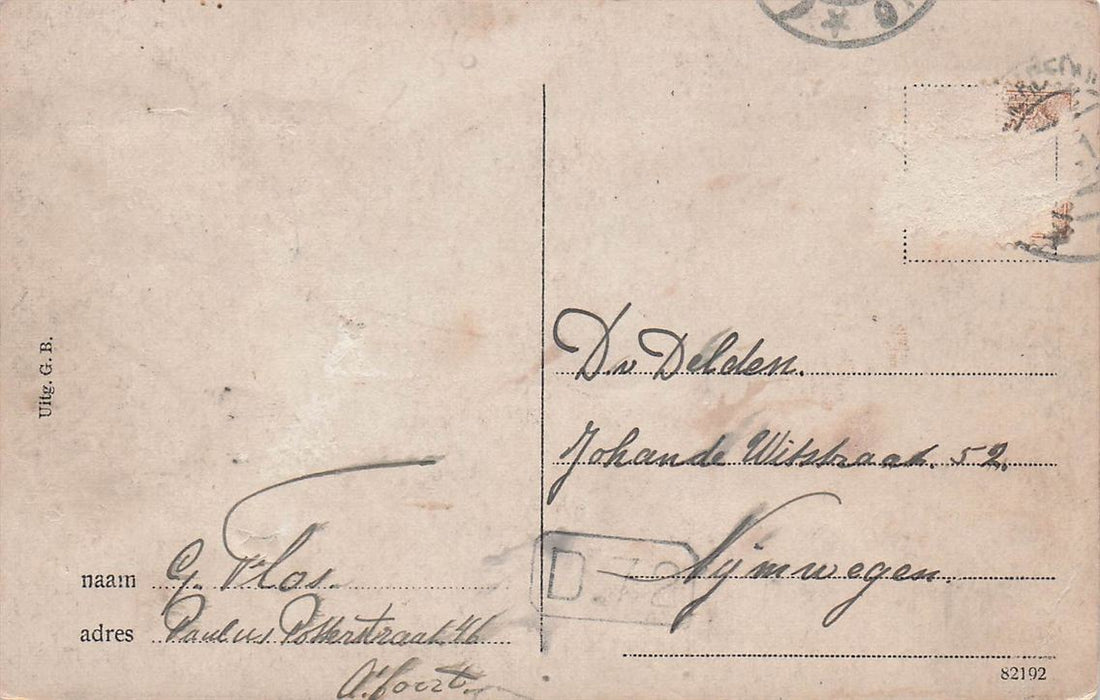 Uitg. G. B.
D. v Delden.
Johan de Witstraat. 52.
Nijmwegen.
naam G. Vlos.
adres Paulus Potterstraat 46
A'foort.
82192